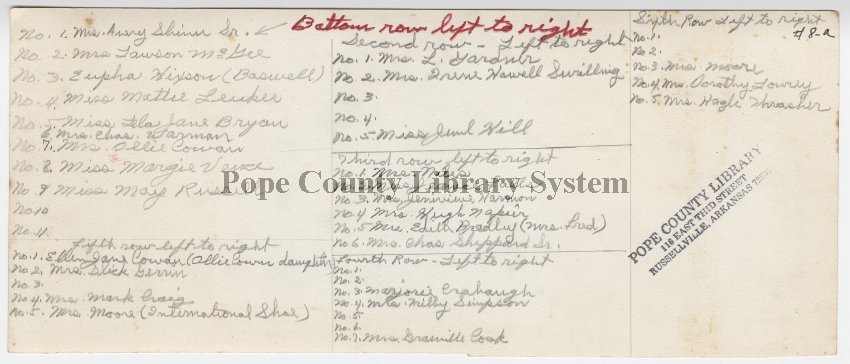 Bottom row left to right
No. 1. Mrs. Avery Shinn Sr.
No. 2. Mrs Lawson McGee
No. 3. Eupha Wilson (Boswell)
No. 4. Miss Mattie Leuker
No. 5 Miss Lela Jane Bryan
6 Mrs. Chas. Zarman
No. 7. Mrs. Ollie Cowan
No. 8. Miss Margie Vance
No 9 Miss May Russ
No. 10
No. 11.
Second row - Left to right
No. 1. Mrs. L. Gardner
No. 2. Mrs. Irene Howell Swilling
No. 3.
No. 4.
No. 5. Miss Jewel Hill
Third row left to right
No. 1. Mrs.
No. 3. Mrs. Jenivieve Harmon
No. 4 Mrs. Hugh Napier
No. 5 Mrs. Edith Bradley (Mrs. Fred)
No 6. Mrs. Chas. Sheppard Sr.
Fourth Row - Left to right
No. 1.
No. 2.
No. 3. Marjorie Crabaugh
No. 4. Mrs. Milby Simpson
No. 5
No. 6.
No. 7. Mrs. Granville Cook
Fifth row left to right
No. 1. Ellen Jane Cowan (Ollie Cowan daughter)
No 2. Mrs. Dick
No. 3.
No. 4. Mrs. Mark Craig
No. 5. Mrs. Moore (International Shoe)
Sixth Row Left to right
#8-a
No. 1.
No 2.
No. 3. Mrs. Moore
No. 4. Mrs. Dorothy Lowry
No. 5. Mrs. Hazle Thrasher
POPE COUNTY LIBRARY
116 EAST THIRD STREET
RUSSELLVILLE, ARKANSAS
Pope County Library System